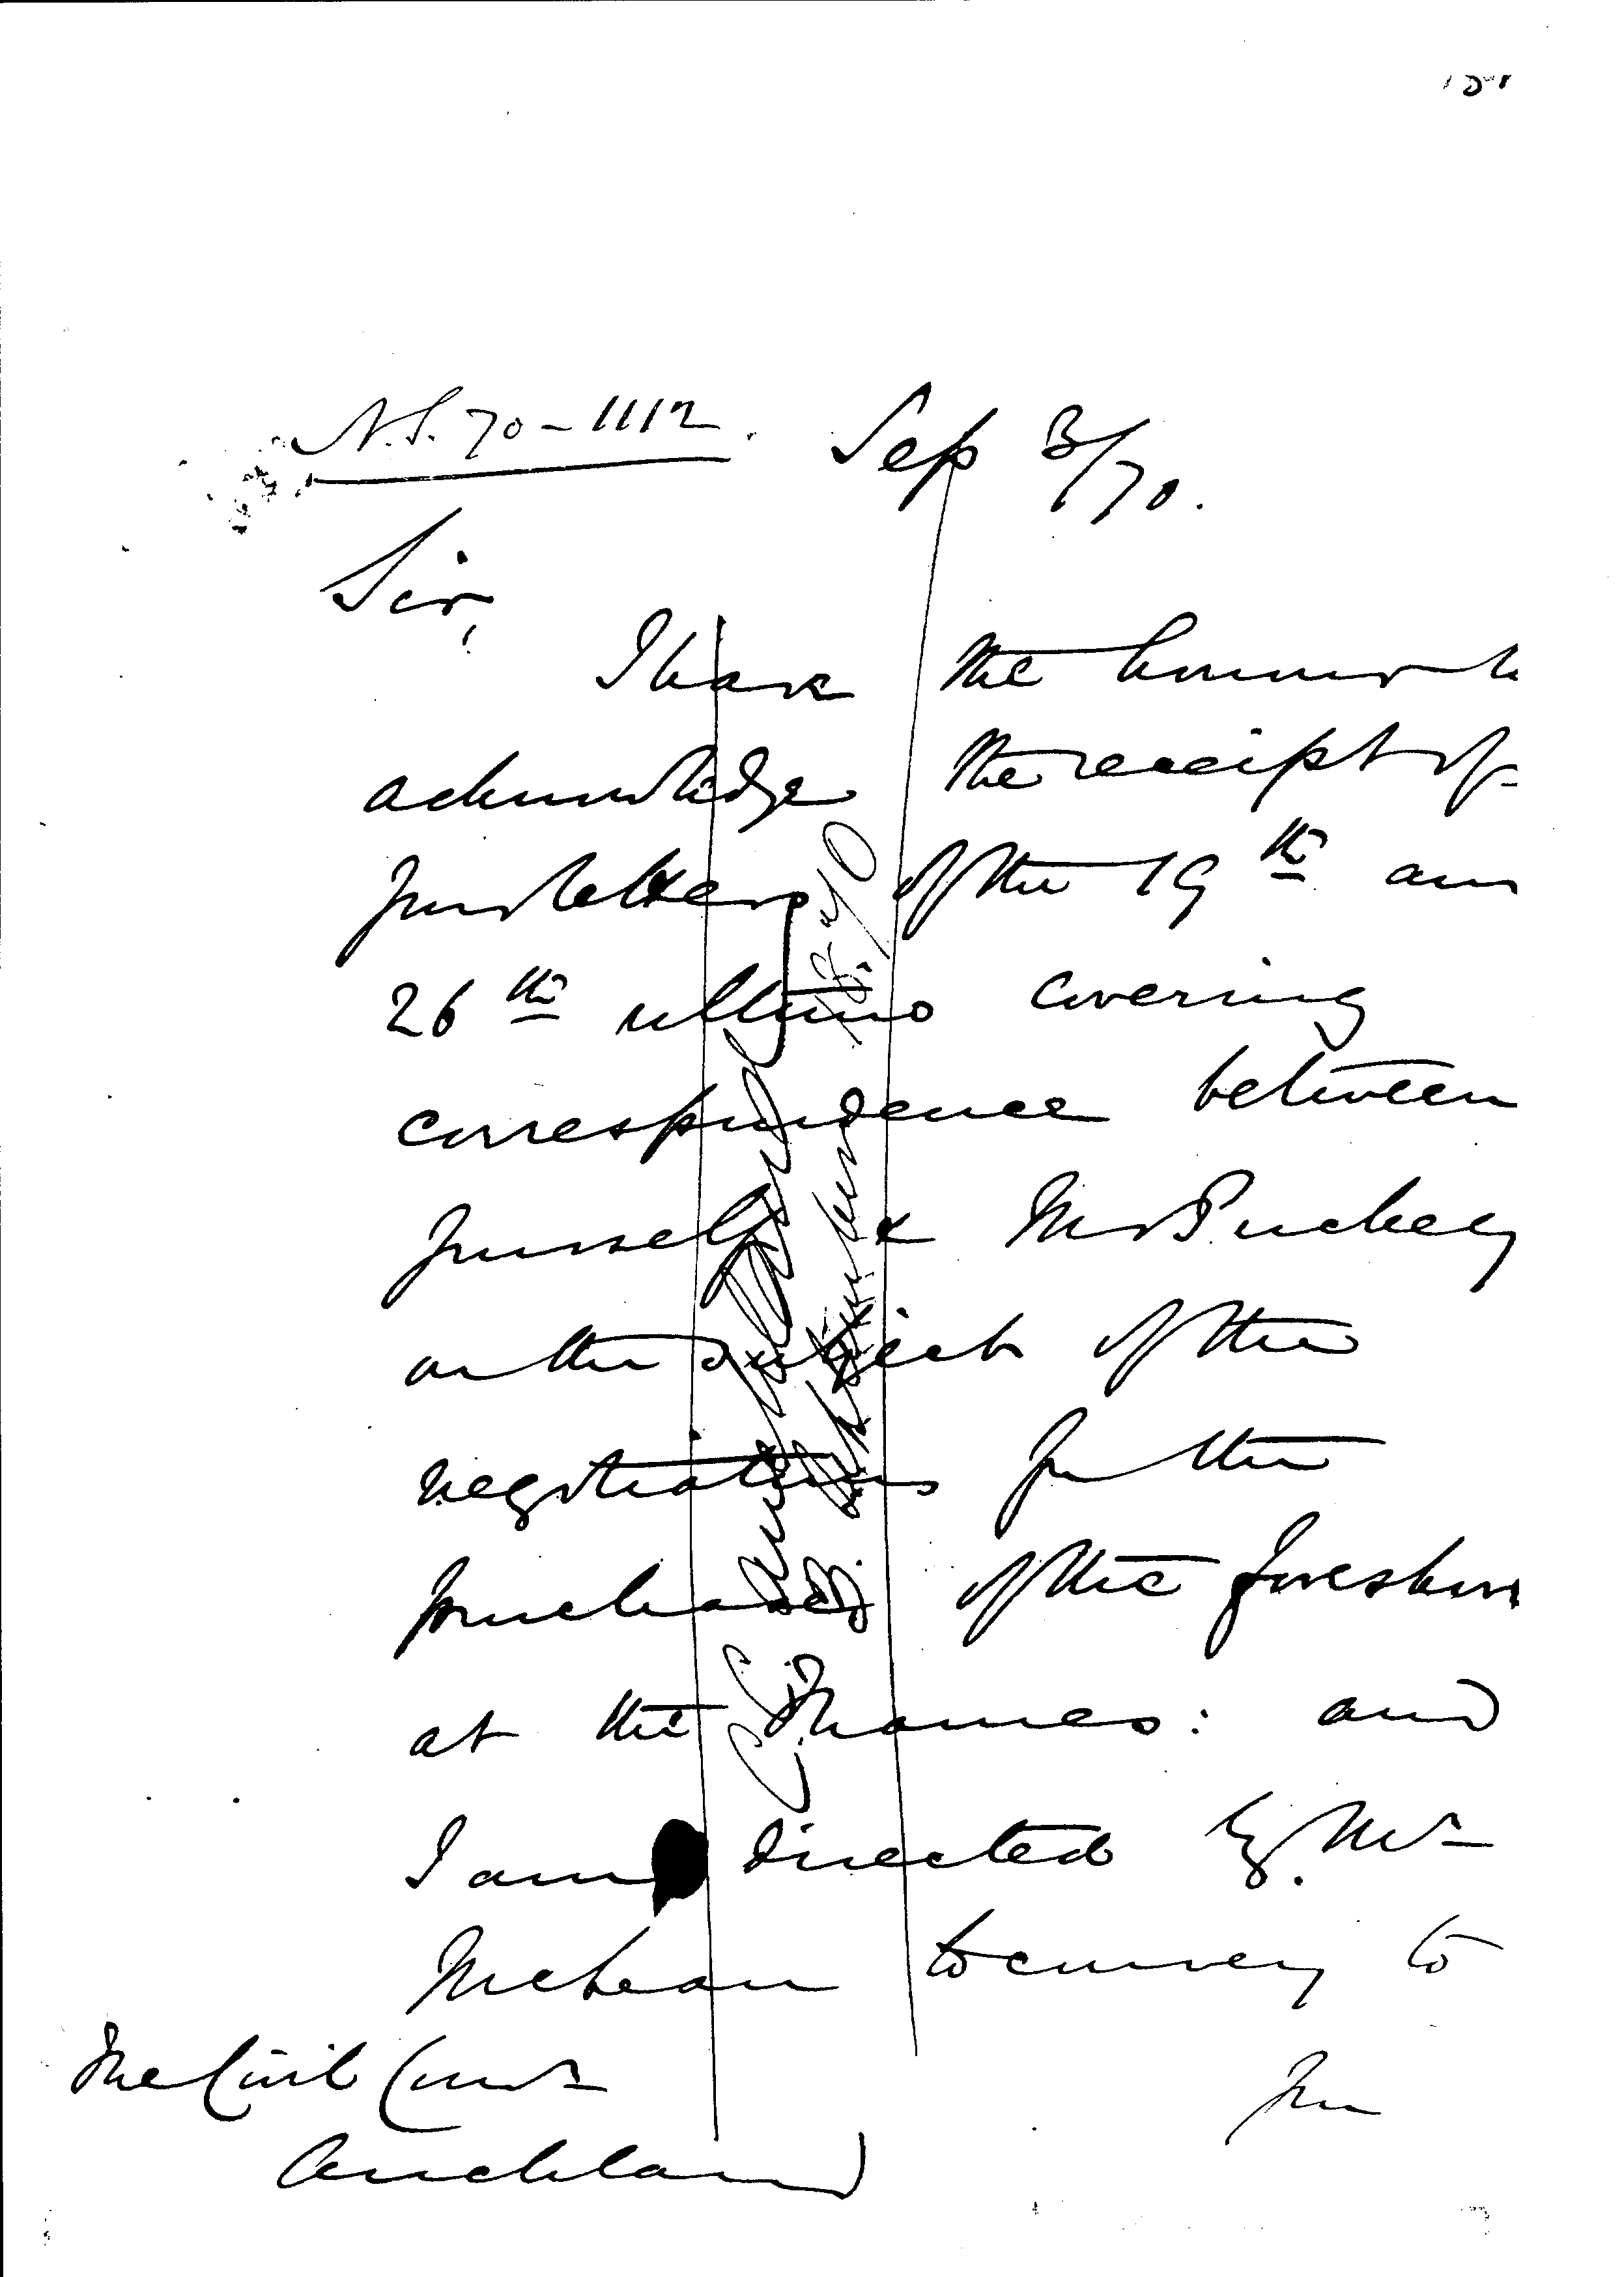 N.S. 70-1112. Sep 3/70.
Sir,
I have the honour to
acknowledge the receipt of
your letters of the 19th and
26th ultimo covering
correspondence between
yourself & Mr Puckey
on the subject of the
negotiations for the
purchase of the foreshore
at the Thames: and
I am directed by Mr
McLean to convey to
you
The Civil Comr
Auckland
1870